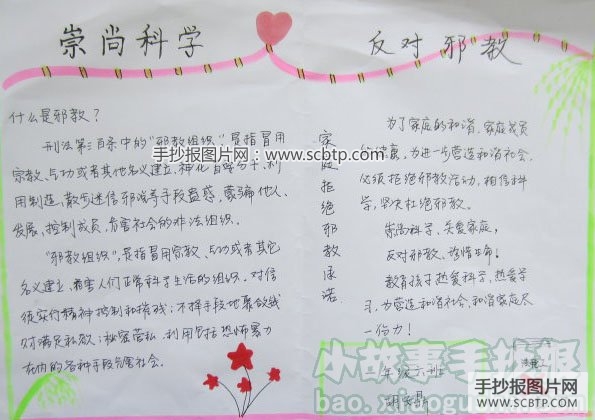 崇尚科学
反对邪教
什么是邪教？
刑法第三百条中的“邪教组织”是指冒用
宗教、气功或者其他名义建立、神化首要分子，利
用制造、散步迷信邪说等手段蛊惑、蒙骗他人，
发展、控制成员，危害社会的非法组织。
“邪教组织”，是指冒用宗教、气功或者其它
名义建立、危害人们正常科学生活的组织。对信
徒实行精神控制和
；不择手段地聚敛钱
财满足私欲；秘密营私、利用包括恐怖暴力
在内的各种手段危害社会。
家庭拒绝邪教承诺
为了家庭的和谐，家庭成员
的健康，为进一步营造和谐社会，
必须拒绝邪教活动，相信科
学，坚决杜绝邪教。
崇尚科学、关爱家庭，
反对邪教、珍惜生命！
教育孩子热爱科学，热爱学
习，为营造和谐社会、和谐家庭尽
一份力！
年级六班
手抄报图片网：www.scbtp.com
小故事手抄报
bao.xiaogu
手抄报图片网
WWW.SCBTP.COM